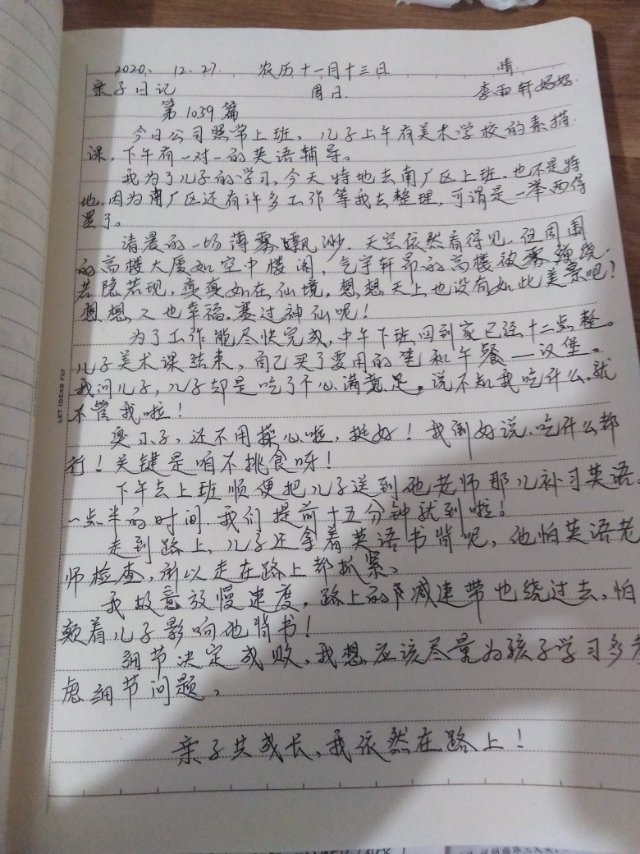 2020. 12.27 农历十一月十三日 晴
亲子日记 周日 李雨轩妈妈
第1039篇
今日公司照常上班。儿子上午有美术学校的素描
课,下午有一对一的英语辅导。
我为了儿子的学习,今天特地去南厂区上班,也不是特
地,因为南厂区还有许多工作等我去整理,可谓是一举两得
罢了。
清晨的一场薄雾飘渺,天空依然看得见,但周围
的高楼大厦如空中楼阁,气宇轩昂的高楼被雾缠绕,
若隐若现,真真如在仙境。想想天上也没有如此美景吧!
想想又也幸福,赛过神仙呢!
为了工作能尽快完成,中午下班回到家已经十二点整。
儿子美术课结束,自己买了要用的笔和午餐—汉堡。
我问儿子,儿子却是吃了个心满意足。说不知我吃什么,就
不管我啦!
臭小子,还不用操心啦,挺好!我倒好说,吃什么都
行!关键是咱不挑食呀!
下午去上班顺便把儿子送到他老师那儿补习英语。
一点半的时间我们提前十五分钟就到啦!
走到路上,儿子还拿着英语书背呢,他怕英语老
师检查,所以走在路上都抓紧。
我故意放慢速度,路上的减速带也绕过去,怕
颠着儿子影响他背书!
细节决定成败,我想应该尽量为孩子学习多考
虑细节问题。
亲子共成长,我依然在路上!
LET IDEAS FLY